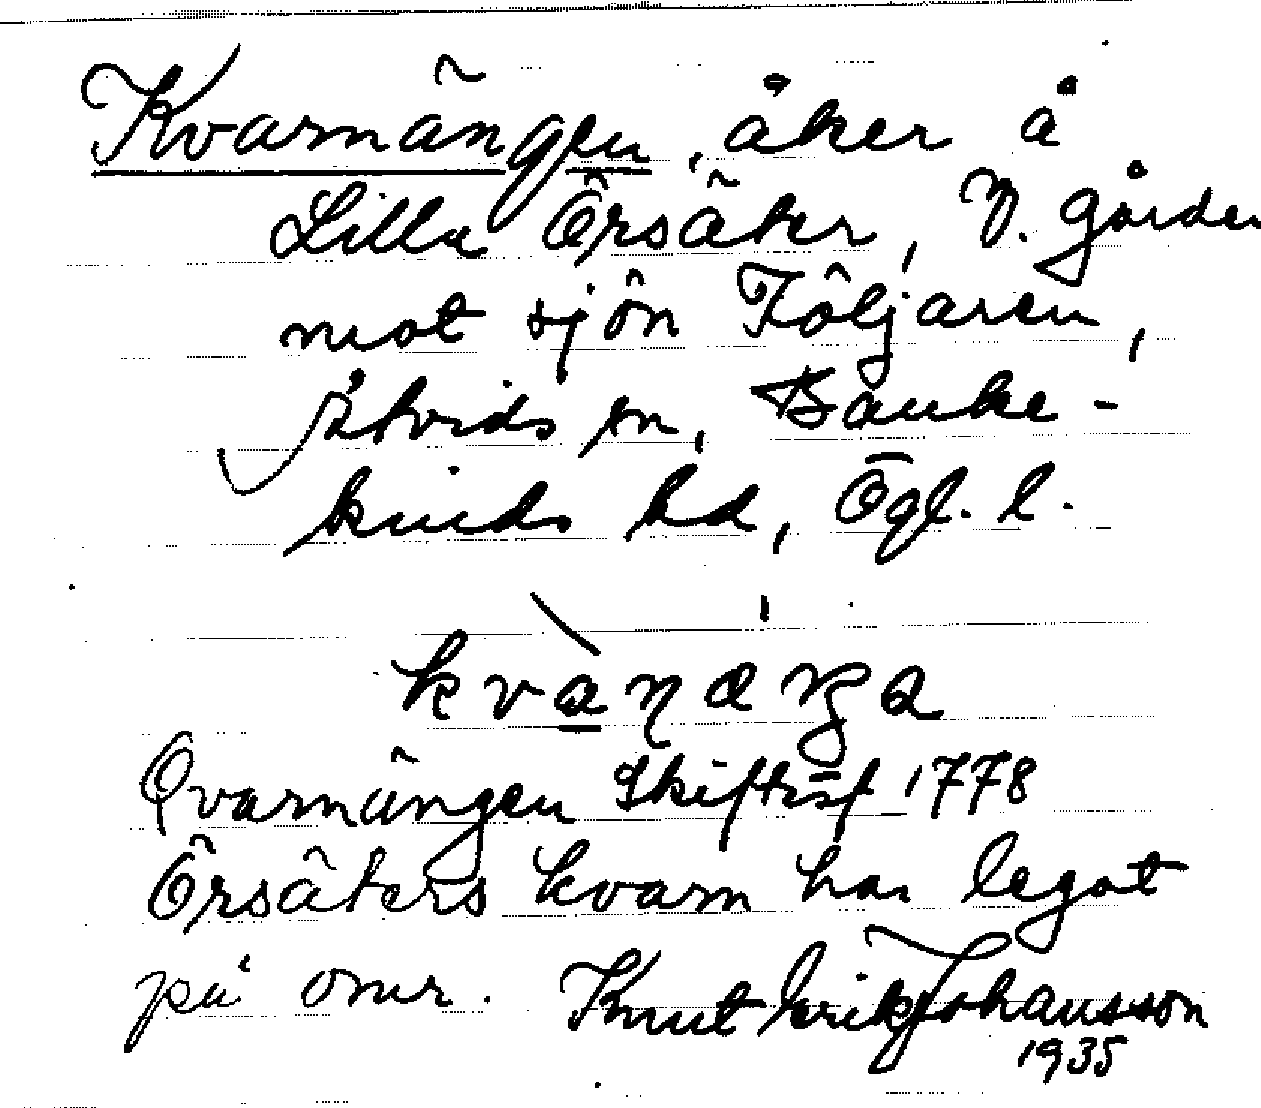 Kvarnängen, åker å
Lilla Örsäter, V. gården
mot sjön Följaren,
Åtvids sn, Banke-
kinds hd, Ögl. l.
Qvarnängen Skiftesf 1778
Örsäters kvarn har legat
på omr. Knut Erik Johansson
1935